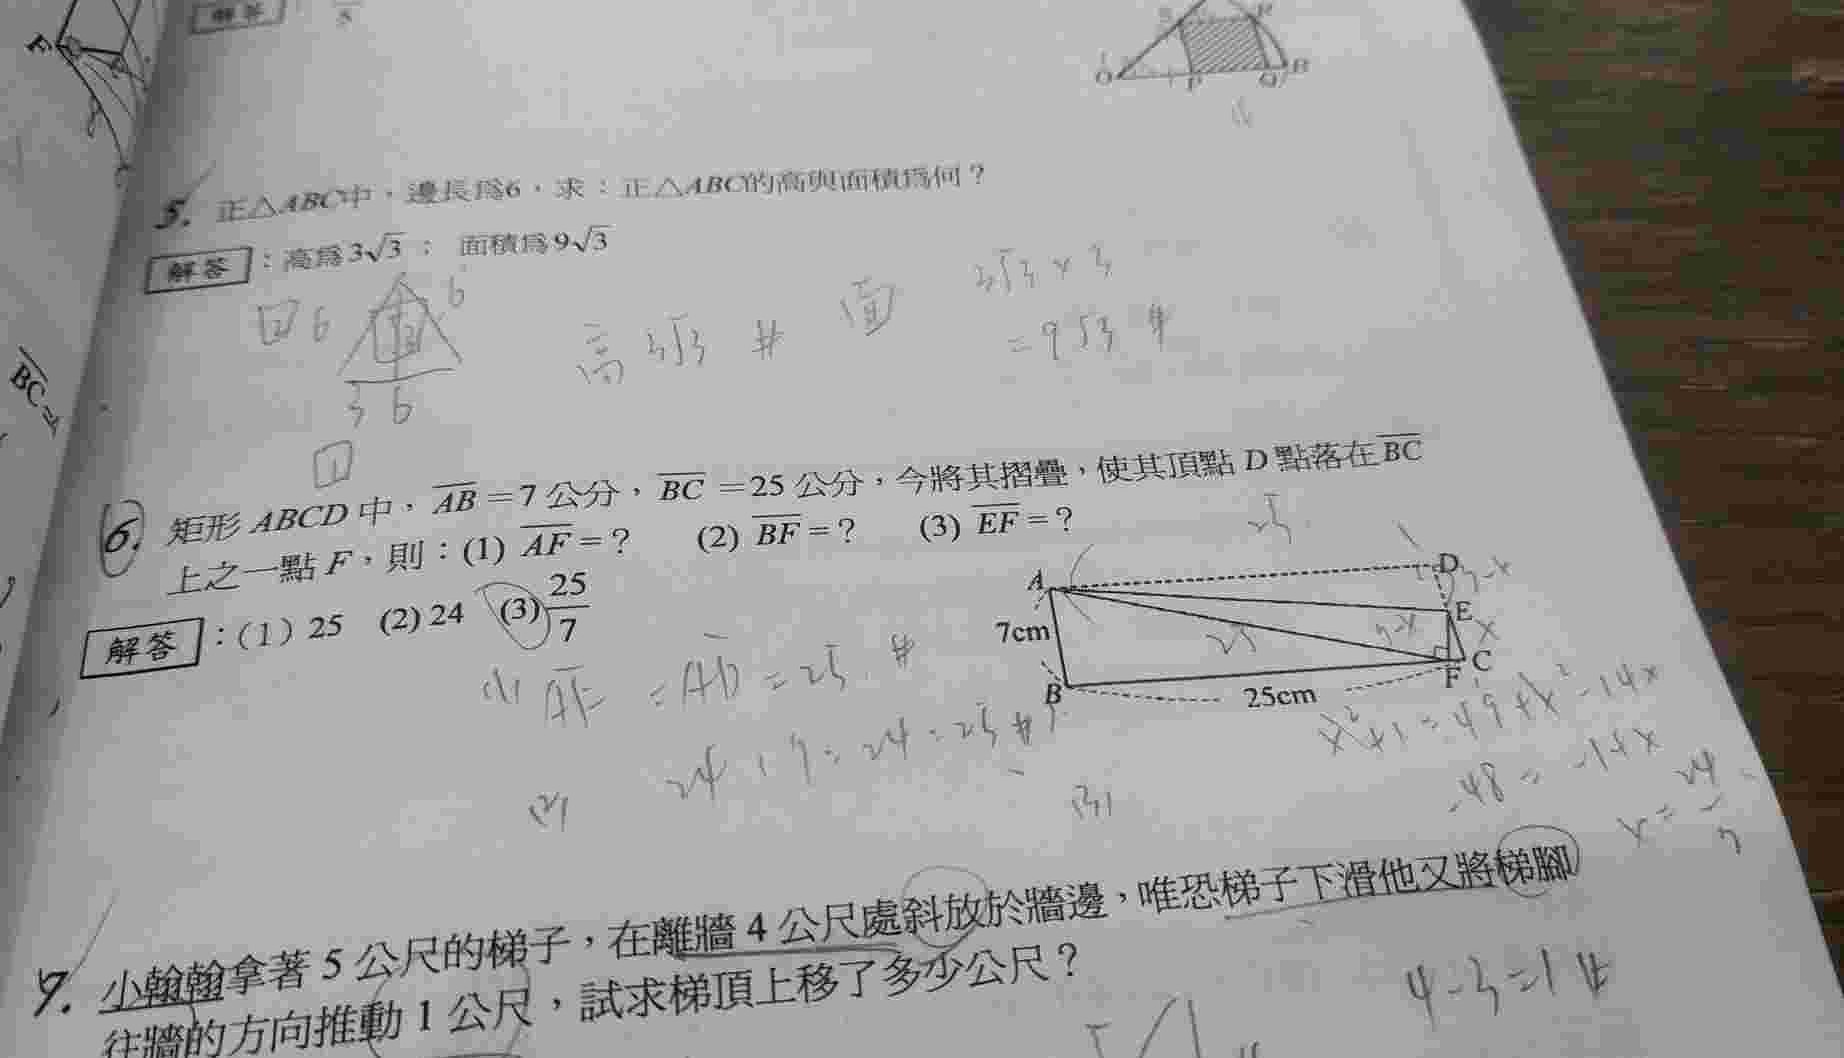 解答
5
S R
O P Q B
F
5. 正△ABC中，邊長為6，求：正△ABC的高與面積為何？
解答：高為3√3； 面積為9√3
2 6 6
3 6
高 3√3 #
面 3√3×3
=9√3 #
BC=
1
6. 矩形 ABCD 中，AB=7 公分，BC=25 公分，今將其摺疊，使其頂點 D 點落在 BC
上之一點 F，則：(1) AF=？ (2) BF=？ (3) EF=？
解答：(1) 25 (2) 24 (3) 25/7
25
A D 7-x
E x
7cm 25 7-x
B F C
25cm 1
(1) AF=AD=25 #
(2) 24
(3) x²+1=49+x²-14x
-48=-14x
x=24/7
7. 小翰翰拿著 5 公尺的梯子，在離牆 4 公尺處斜放於牆邊，唯恐梯子下滑他又將梯腳
往牆的方向推動 1 公尺，試求梯頂上移了多少公尺？
4-3=1 #